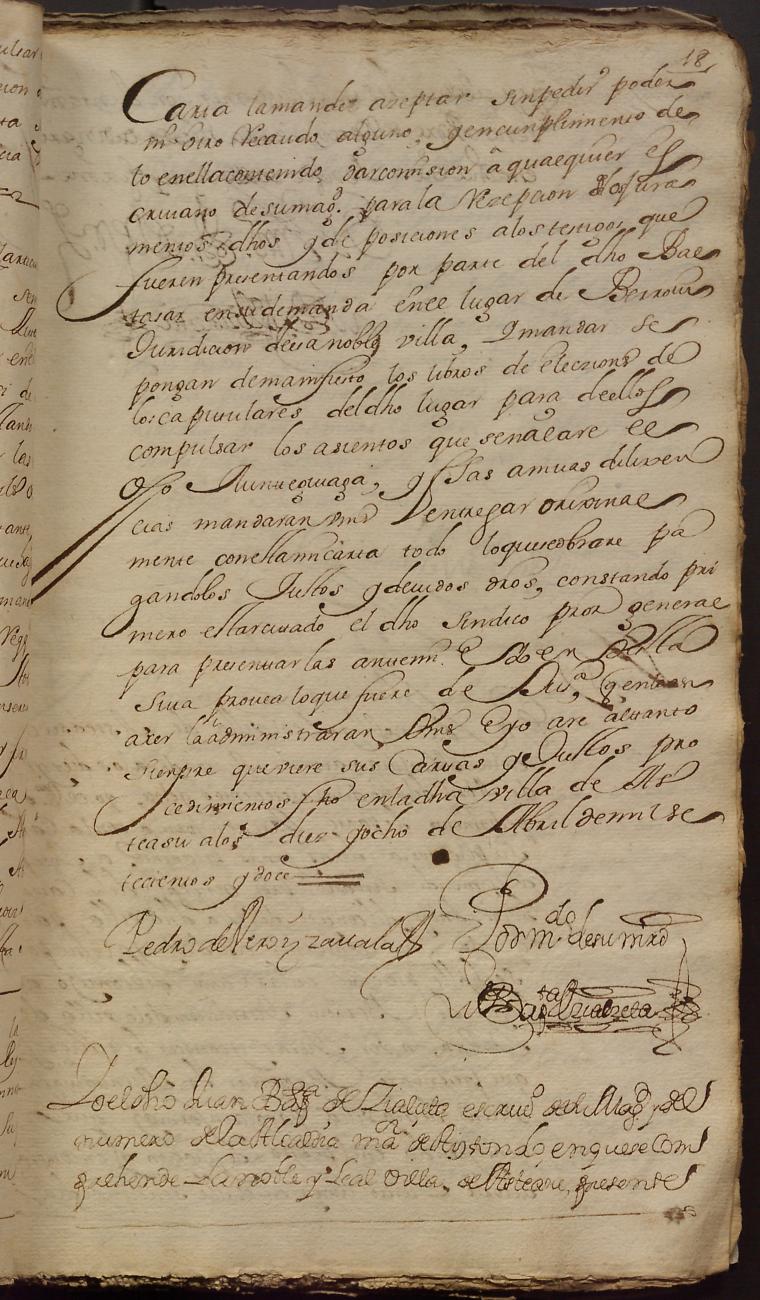 18
Carta la mande aceptar sin pedir poder
ni otro Recaudo alguno, y en cumplimiento de
lo en ella contenido dar comision â qualequier es
criuano de su magd. para la Recepcion de los jura
mentos dhos y de posiciones a los testigos que
fueren presentandos por parte del dho Bae
tasar en su demanda en ee lugar de
Juridicion desta noble villa, y mandar se
pongan de manifiesto los libros de elecziones de
los capitulares del dho lugar para de ellos
compulsar los asientos que señaeare ee
dho y estas amuas dilixen
cias mandaran Vms entregar orixinae
mente con esta mi carta todo lo que se obrare pa
gandolos Justos y deuidos dros, constando pri
mero estar citado el dho sindico pror generae
para presentarlas ante mi E sto en Vista
Sua prouea lo que fuere de Justa, y en lo an
si acer la administraran Vms E yo are al tanto
siempre que viere sus Cartas y Justos pro
cedimientos fho en la dha villa de As
teasu a los diez y ocho de Abril de mil se
tecientos y doce
Pedro de Veroiz zauala
Por mdo. de su mrd
Juan Bapta de Zialzeta
Yo el dho Juan Bapta de Zialceta escriuo del Magd y del
numero de la Alcaldia mayr de Aystondo en que se Com
prehende La noble y Leal Villa de Asteasu, presente